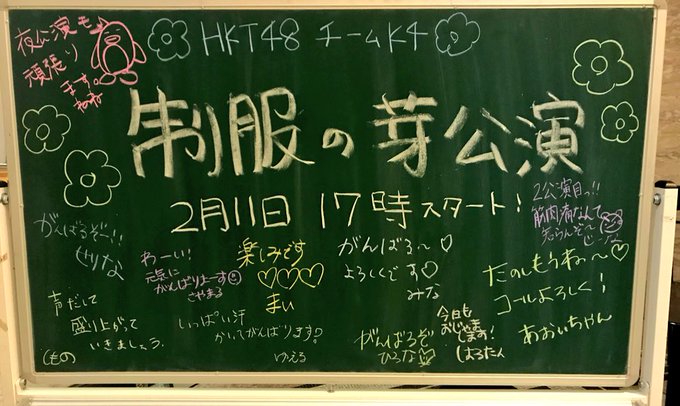 夜公演モ
頑張り
ます。
HKT48 チームK4
制服の芽公演
2月11日 17時スタート!
がんばるぞー!!
せりな
わーい!
元気に
がんばりまーす
さやまる
楽しみです
♡♡♡
まい
がんばる〜♡
よろしくです♡
みな
2公演目っ!!
筋肉痛なんて
知らんぞ〜
じーな
たのしもうね〜♡
コールよろしく!
あおいちゃん
声だして
盛り上がって
いきましょう。
しもの
いっぱい汗
かいてがんばります♡
ゆえる
がんばるぞ
ひろな
今日も
おじゃま
します!
しほたん